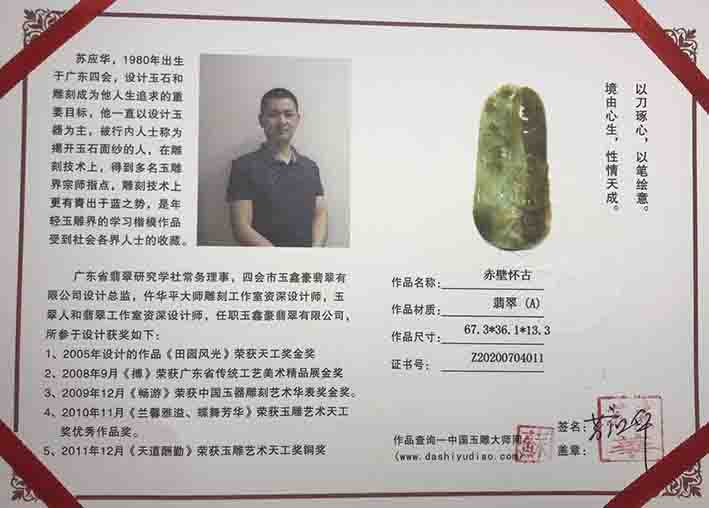 苏应华，1980年出生
于广东四会，设计玉石和
雕刻成为他人生追求的重
要目标，他一直以设计玉
器为主，被行内人士称为
揭开玉石面纱的人，在雕
刻技术上，得到多名玉雕
界宗师指点，雕刻技术上
更有青出于蓝之势，是年
轻玉雕界的学习楷模作品
受到社会各界人士的收藏。
广东省翡翠研究学社常务理事，四会市玉鑫豪翡翠有
限公司设计总监，仵华平大师雕刻工作室资深设计师，玉
翠人和翡翠工作室资深设计师，任职玉鑫豪翡翠有限公司，
所参于设计获奖如下：
1、2005年设计的作品《田园风光》荣获天工奖金奖
2、2008年9月《搏》荣获广东省传统工艺美术精品展金奖
3、2009年12月《畅游》荣获中国玉器雕刻艺术华表奖金奖。
4、2010年11月《兰馨雅溢、蝶舞芳华》荣获玉雕艺术天工
奖优秀作品奖。
5、2011年12月《天道酬勤》荣获玉雕艺术天工奖铜奖
以刀琢心，以笔绘意。
境由心生，性情天成。
作品名称：赤壁怀古
作品材质：翡翠（A）
作品尺寸：67.3*36.1*13.3
证书号：Z20200704011
作品查询—中国玉雕大师网
(www.dashiyudiao.com)
签名：
盖章：